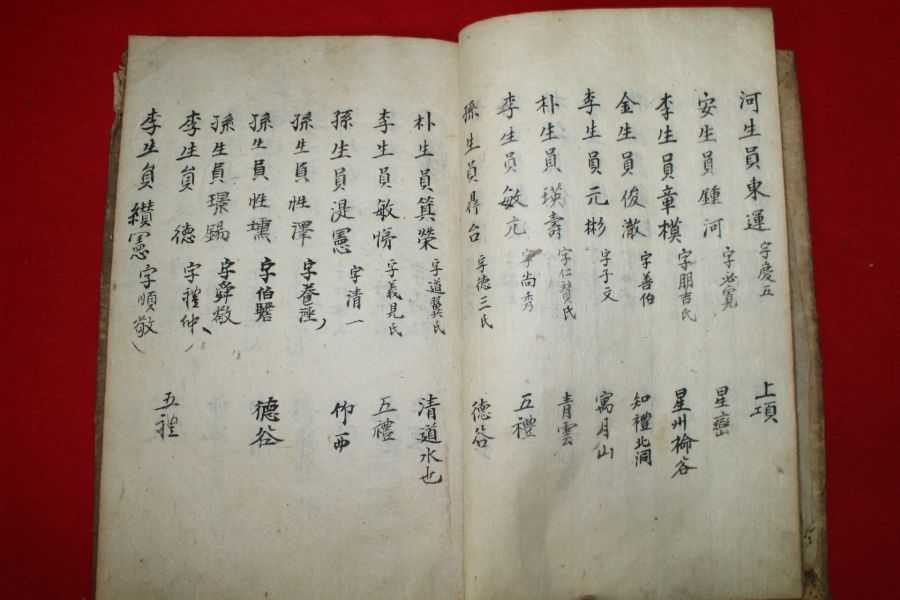 河生員東運 字慶五 上項
安生員鍾河 字必寬 星巒
李生員章模 字朋吉氏 星州榆谷
金生員俊澈 字善伯 知禮北洞
李生員元彬 字子文 寓月山
朴生員瑛壽 字仁贊氏 青雲
李生員敏元 字尚秀 五禮
孫生員鼎台 字德三氏 德谷
朴生員箕榮 字道翼氏 清道水也
李生員敏 字義見氏 五禮
孫生員湜憲 字清一 仰西
孫生員性澤 字
孫生員性 字伯瞻 德谷
孫生員璟錫 字舜敬
李生員 德 字禮仲
李生員纘憲 字順敬 五禮